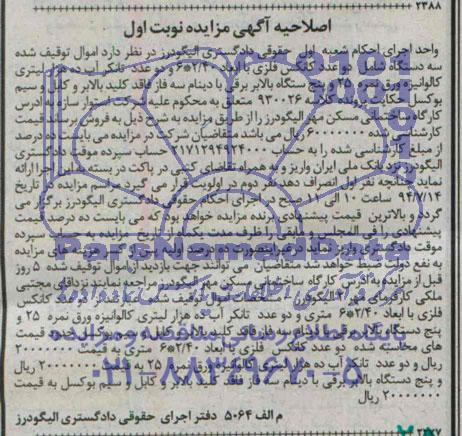 ۲۳۸۸
اصلاحیه آگهی مزایده نوبت اول
واحد اجرای احکام شعبه اول حقوقی دادگستری الیگودرز در نظر دارد اموال توقیف شده
سه دستگاه شامل دو عدد کانکس فلزی با ابعاد ۲/۴۰*۶ و دو عدد تانکر آب ده هزار لیتری
گالوانیزه ورق نمره ۲۵ و پنج دستگاه بالابر برقی با دینام سه فاز فاقد کلید بالابر و کابل و سیم
بوکسل حکایت پرونده کلاسه ۹۳۰۰۲۶ متعلق به محکوم علیه شرکت استوار سازه به آدرس
کارگاه ساختمانی مسکن مهر الیگودرز را از طریق مزایده به شرح ذیل به فروش رساند قیمت
کارشناسی شده ۶۰۰۰۰۰۰۰ ریال می باشد متقاضیان شرکت در مزایده می بایست ده درصد
از مبلغ کارشناسی شده را به حساب ۲۱۷۱۲۹۴۹۲۴۰۰۰ حساب سپرده موقت دادگستری
الیگودرز نزد بانک ملی ایران واریز و به همراه تقاضای کتبی در پاکت در بسته به این اجرا ارائه
نماید چنانچه نفر اول انصراف دهد نفر دوم در اولویت قرار می گیرد مراسم مزایده در تاریخ
۹۴/۷/۱۴ ساعت ۱۰ الی ۱۱ صبح در اجرای احکام حقوقی دادگستری الیگودرز برگزار می
گردد و بالاترین قیمت پیشنهادی برنده مزایده خواهد بود و می بایست ده درصد قیمت
پیشنهادی را فی المجلس و مابقی را ظرف مدت یکماه از تاریخ مزایده به حساب سپرده
موقت دادگستری واریز نماید در غیر اینصورت ده درصد اولیه پس از کسر هزینه های مزایده
به نفع دولت ضبط خواهد شد متقاضیان می توانند جهت بازدید از اموال توقیف شده ۵ روز
قبل از مزایده به آدرس کارگاه ساختمانی مسکن مهر الیگودرز مراجعه نمایند نزد آقای مجتبی
ملکی کارفرمای مهر الیگودرز مشخصات اموال توقیف شده کانکس
فلزی با ابعاد ۲/۴۰*۶ متری و دو عدد تانکر آب ده هزار لیتری گالوانیزه ورق نمره ۲۵ و
پنج دستگاه بالابر برقی با دینام سه فاز فاقد کلید بالابر و کابل و سیم بوکسل حدود قیمت
های محاسبه شده دو عدد کانکس فلزی با ابعاد ۲/۴۰*۶ متری به قیمت ۲۰۰۰۰۰۰۰
ریال و دو عدد تانکر آب ده هزار لیتری گالوانیزه ورق نمره ۲۵ به قیمت ۲۰۰۰۰۰۰۰ ریال
و پنج دستگاه بالابر برقی با دینام سه فاز فاقد کلید بالابر و کابل و سیم بوکسل به قیمت
۲۰۰۰۰۰۰۰ ریال
م الف ۵۰۶۴ دفتر اجرای حقوقی دادگستری الیگودرز
ParsNamadData
پایگاه اطلاع رسانی مناقصه و مزایده
۰۲۱-۸۸۳۴۹۶۷۰-۵